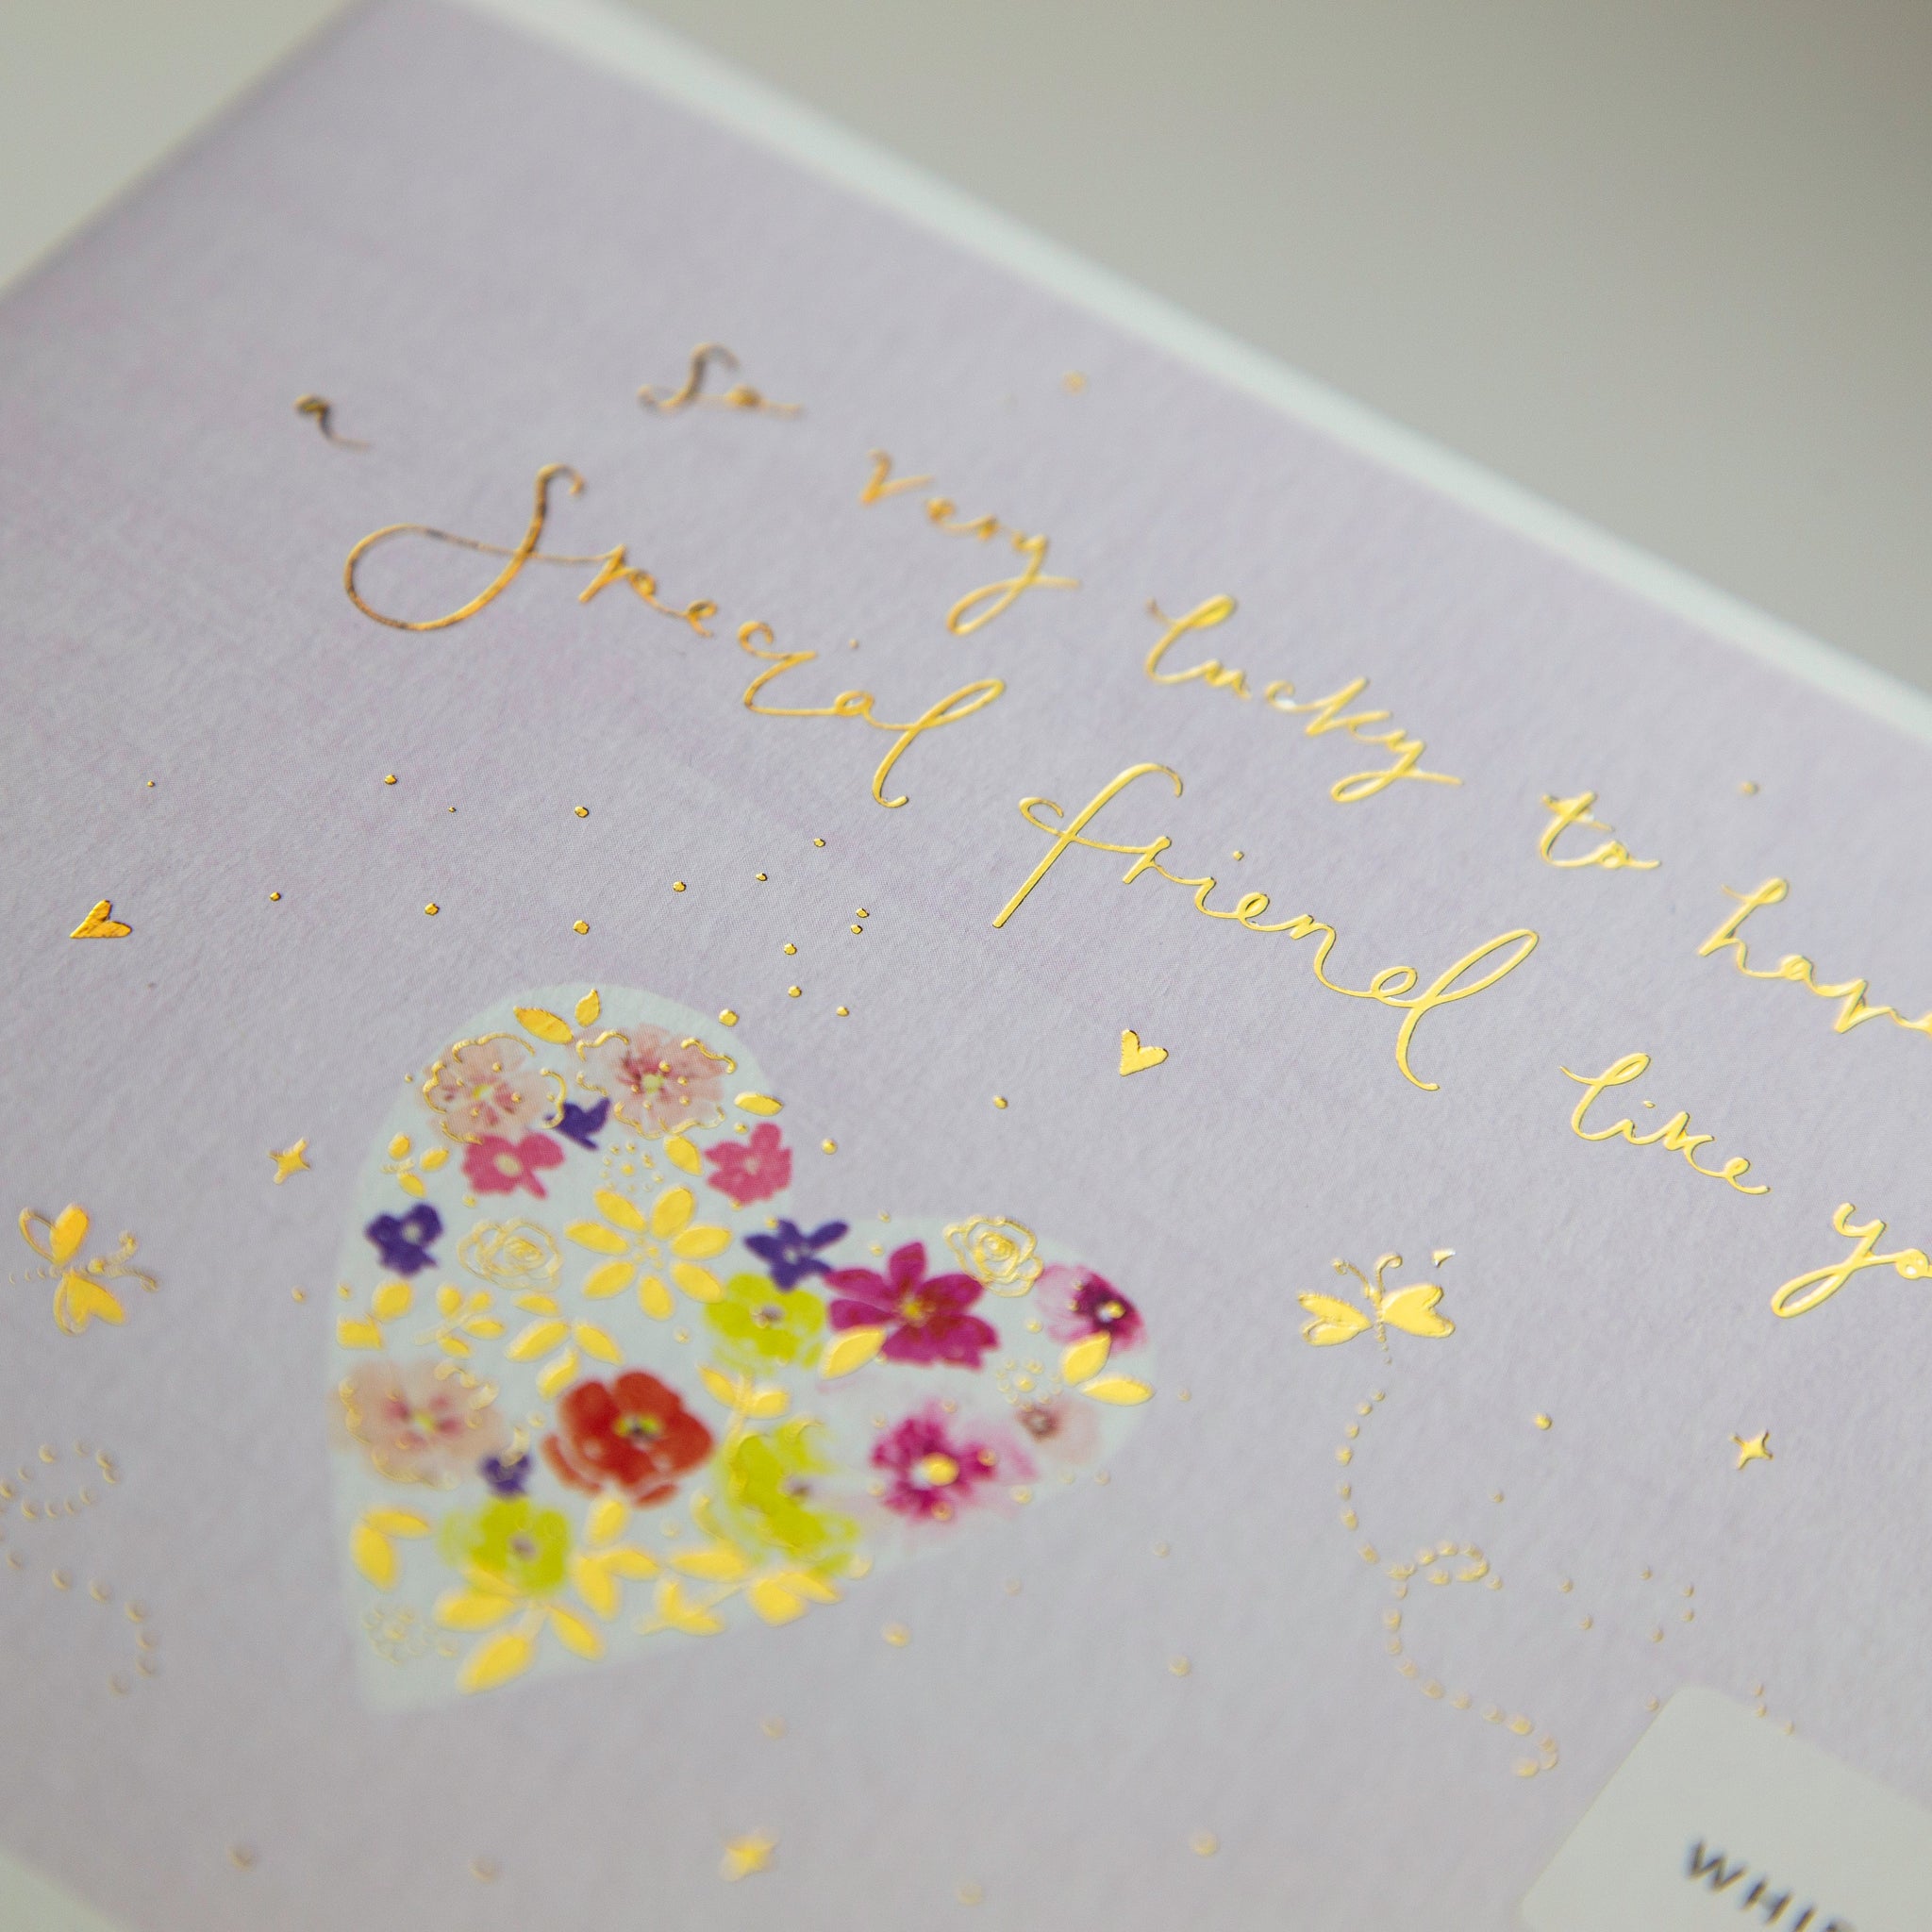 So very lucky to have
a Special friend like yo
WHIS